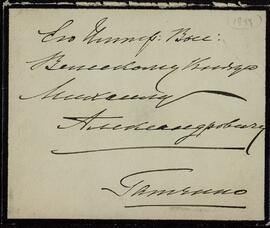 (1898)
Его Импер: Выс:
Великому Князю
Михаилу
Александровичу
Гатчино